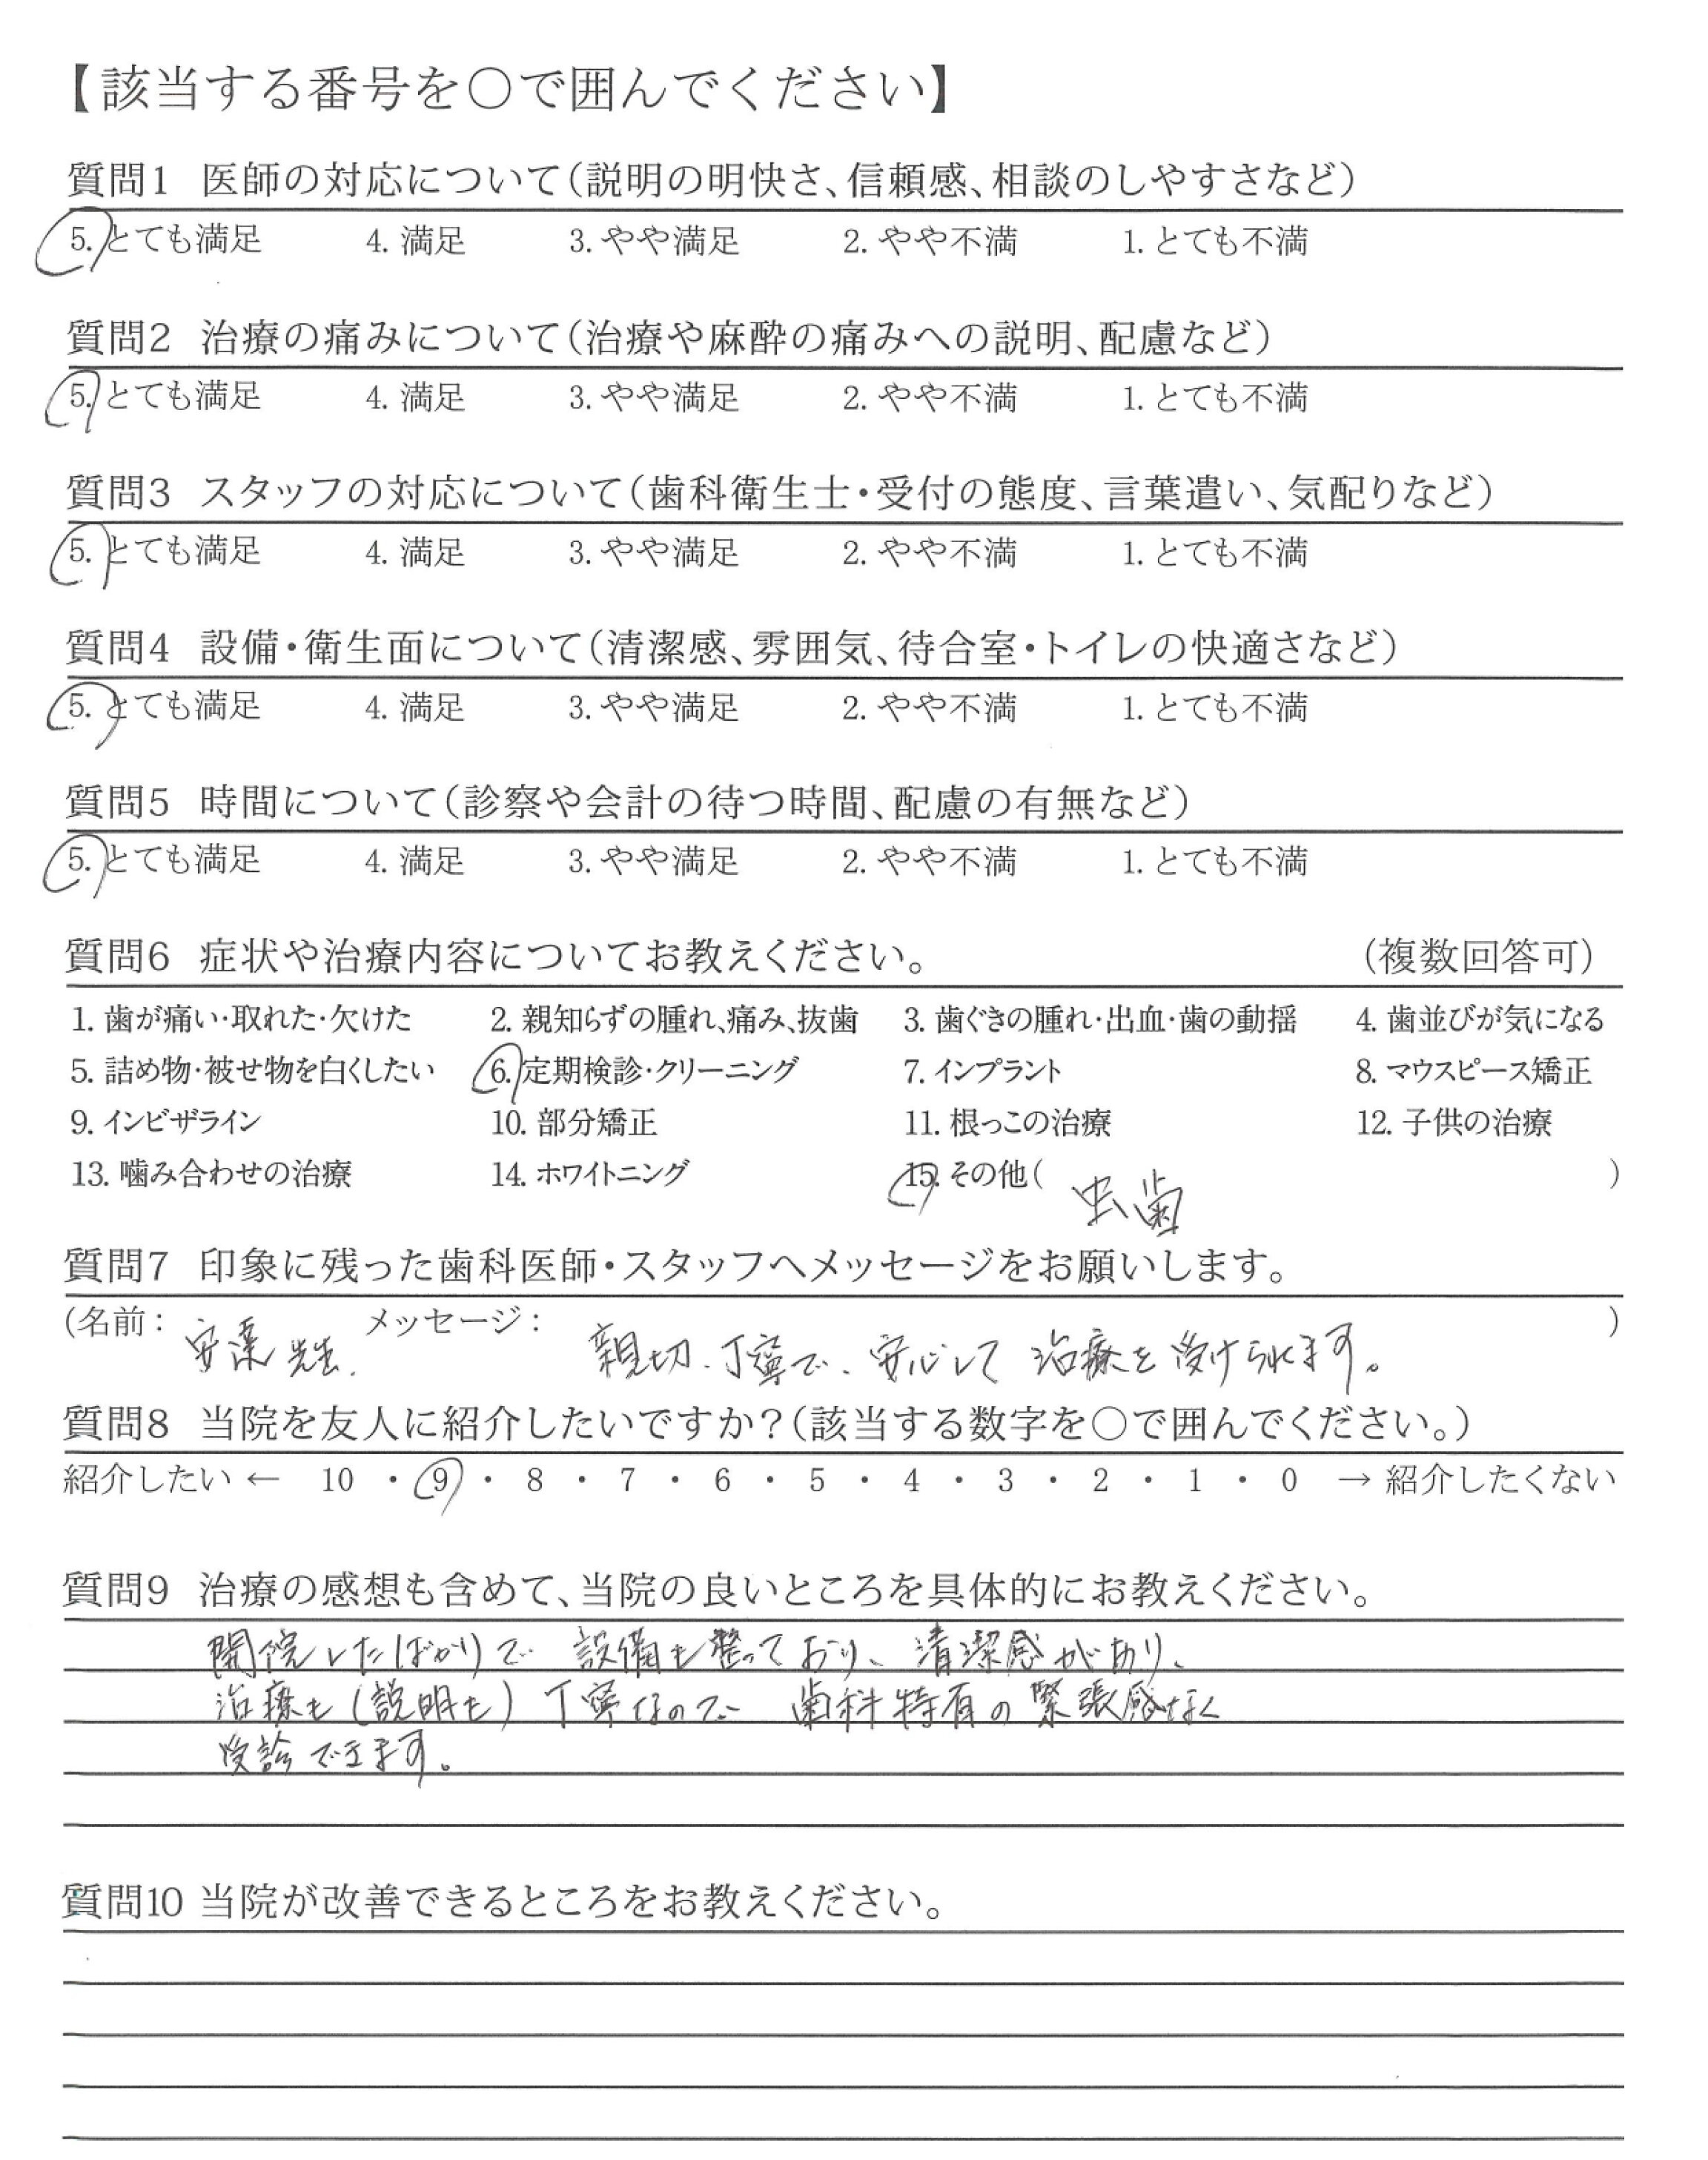 【該当する番号を○で囲んでください】
質問1 医師の対応について(説明の明快さ、信頼感、相談のしやすさなど)
5. とても満足 4. 満足 3. やや満足 2. やや不満 1. とても不満
質問2 治療の痛みについて(治療や麻酔の痛みへの説明、配慮など)
5. とても満足 4. 満足 3. やや満足 2. やや不満 1. とても不満
質問3 スタッフの対応について(歯科衛生士・受付の態度、言葉遣い、気配りなど)
5. とても満足 4. 満足 3. やや満足 2. やや不満 1. とても不満
質問4 設備・衛生面について(清潔感、雰囲気、待合室・トイレの快適さなど)
5. とても満足 4. 満足 3. やや満足 2. やや不満 1. とても不満
質問5 時間について(診察や会計の待つ時間、配慮の有無など)
5. とても満足 4. 満足 3. やや満足 2. やや不満 1. とても不満
質問6 症状や治療内容についてお教えください。 (複数回答可)
1. 歯が痛い・取れた・欠けた 2. 親知らずの腫れ、痛み、抜歯 3. 歯ぐきの腫れ・出血・歯の動揺 4. 歯並びが気になる
5. 詰め物・被せ物を白くしたい 6. 定期検診・クリーニング 7. インプラント 8. マウスピース矯正
9. インビザライン 10. 部分矯正 11. 根っこの治療 12. 子供の治療
13. 噛み合わせの治療 14. ホワイトニング 15. その他( 虫歯 )
質問7 印象に残った歯科医師・スタッフへメッセージをお願いします。
(名前: 安達先生. メッセージ: 親切、丁寧で、安心して治療を受けられます。 )
質問8 当院を友人に紹介したいですか?(該当する数字を○で囲んでください。)
紹介したい ← 10 ・ 9 ・ 8 ・ 7 ・ 6 ・ 5 ・ 4 ・ 3 ・ 2 ・ 1 ・ 0 → 紹介したくない
質問9 治療の感想も含めて、当院の良いところを具体的にお教えください。
開院したばかりで 設備も整っており、清潔感があり、
治療も(説明も)丁寧なので 歯科特有の緊張感なく
受診できます。
質問10 当院が改善できるところをお教えください。